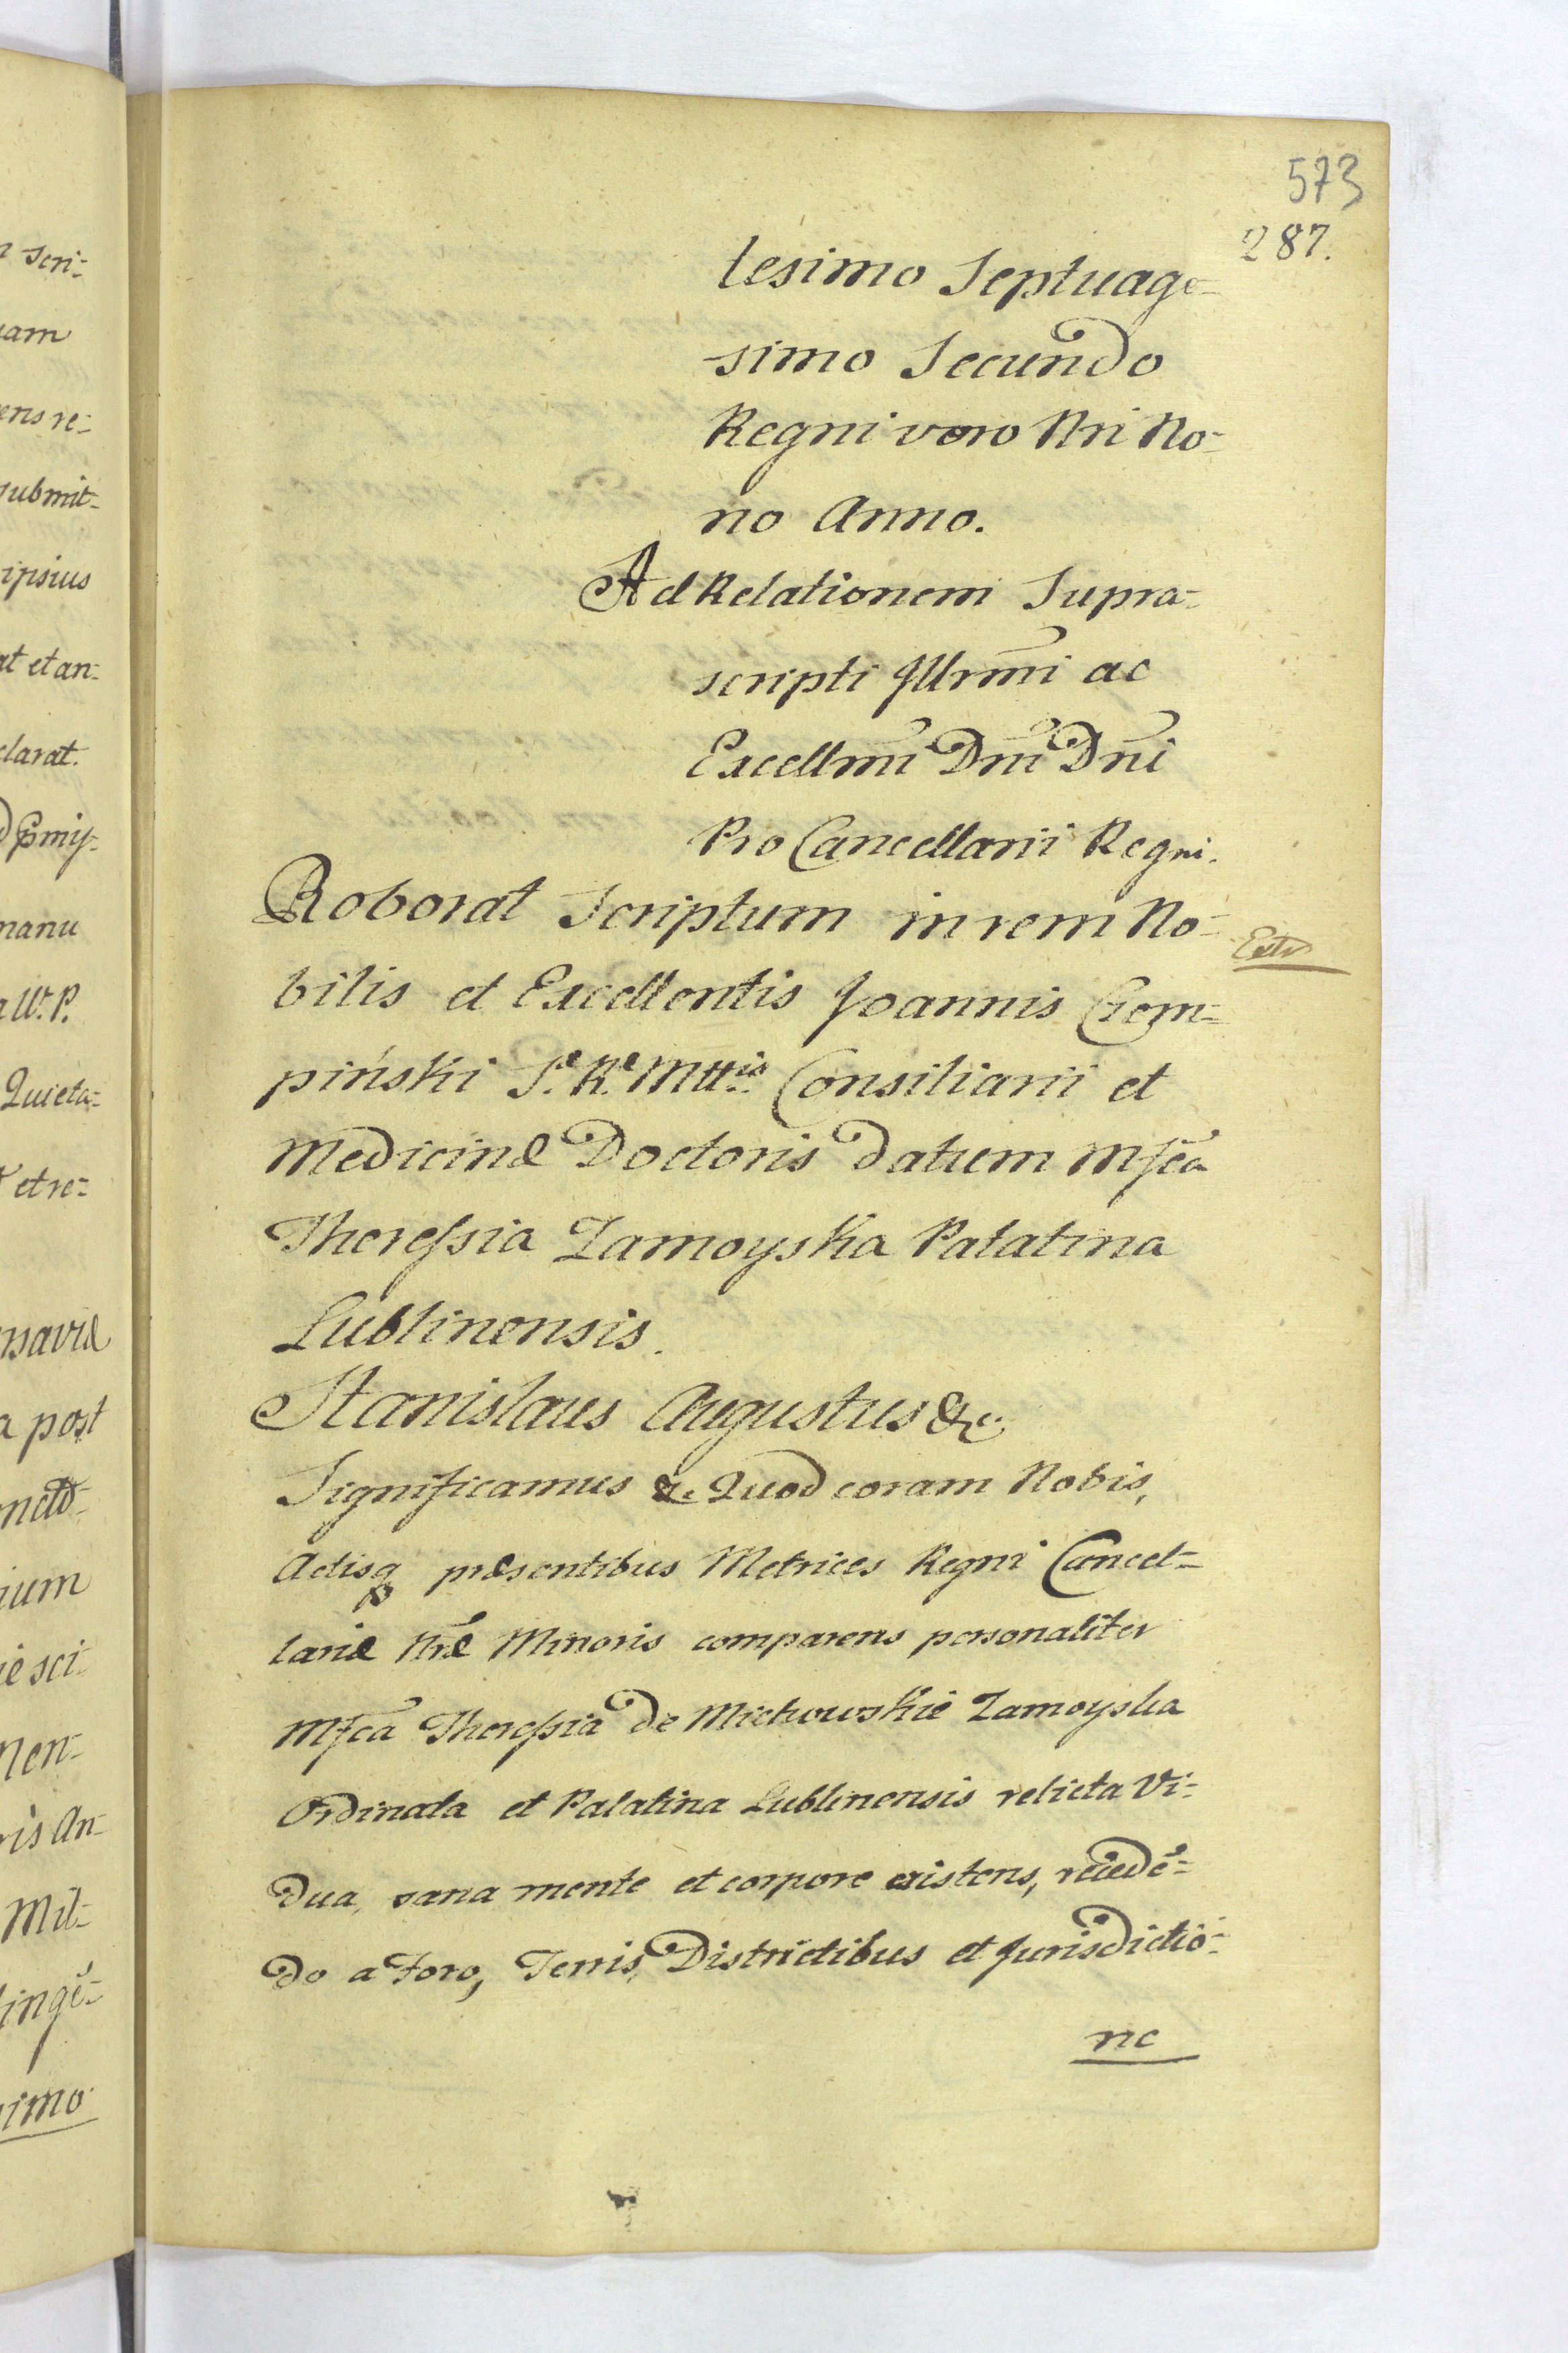 573
287.
lesimo Septuage-
simo Secundo
Regni vero Nri No-
no Anno.
Ad Relationem Supra-
scripti Jllrmi ac
Excellmi Dni Dni
Pro Cancellarii Regni.
Roborat Scriptum in rem No-
bilis et Excellentis Joannis Czem-
piński Sæ Ræ Mttis Consiliarii et
Medicinæ Doctoris datum Mfca
Theressia Zamoyska Palatina
Lublinensis.
Stanislaus Augustus &c.
Significamus &c. Quod coram Nobis,
Actisq præsentibus Metrices Regni Cancel-
lariæ Nræ Minoris comparens personaliter
Mfca Theressia de Michowskie Zamoyska
Ordinata et Palatina Lublinensis relicta Vi-
dua, sana mente et corpore existens, recedē-
do a Foro, Terris, Districtibus et Jurisdictio-
ne
n scri-
uam
ens re-
submit-
ipsius
at et an-
clarat.
manu
a W. P.
Quieta-
et re-
rsaviæ
a post
ium
ie sci-
Men-
ris An-
Mil-
imo